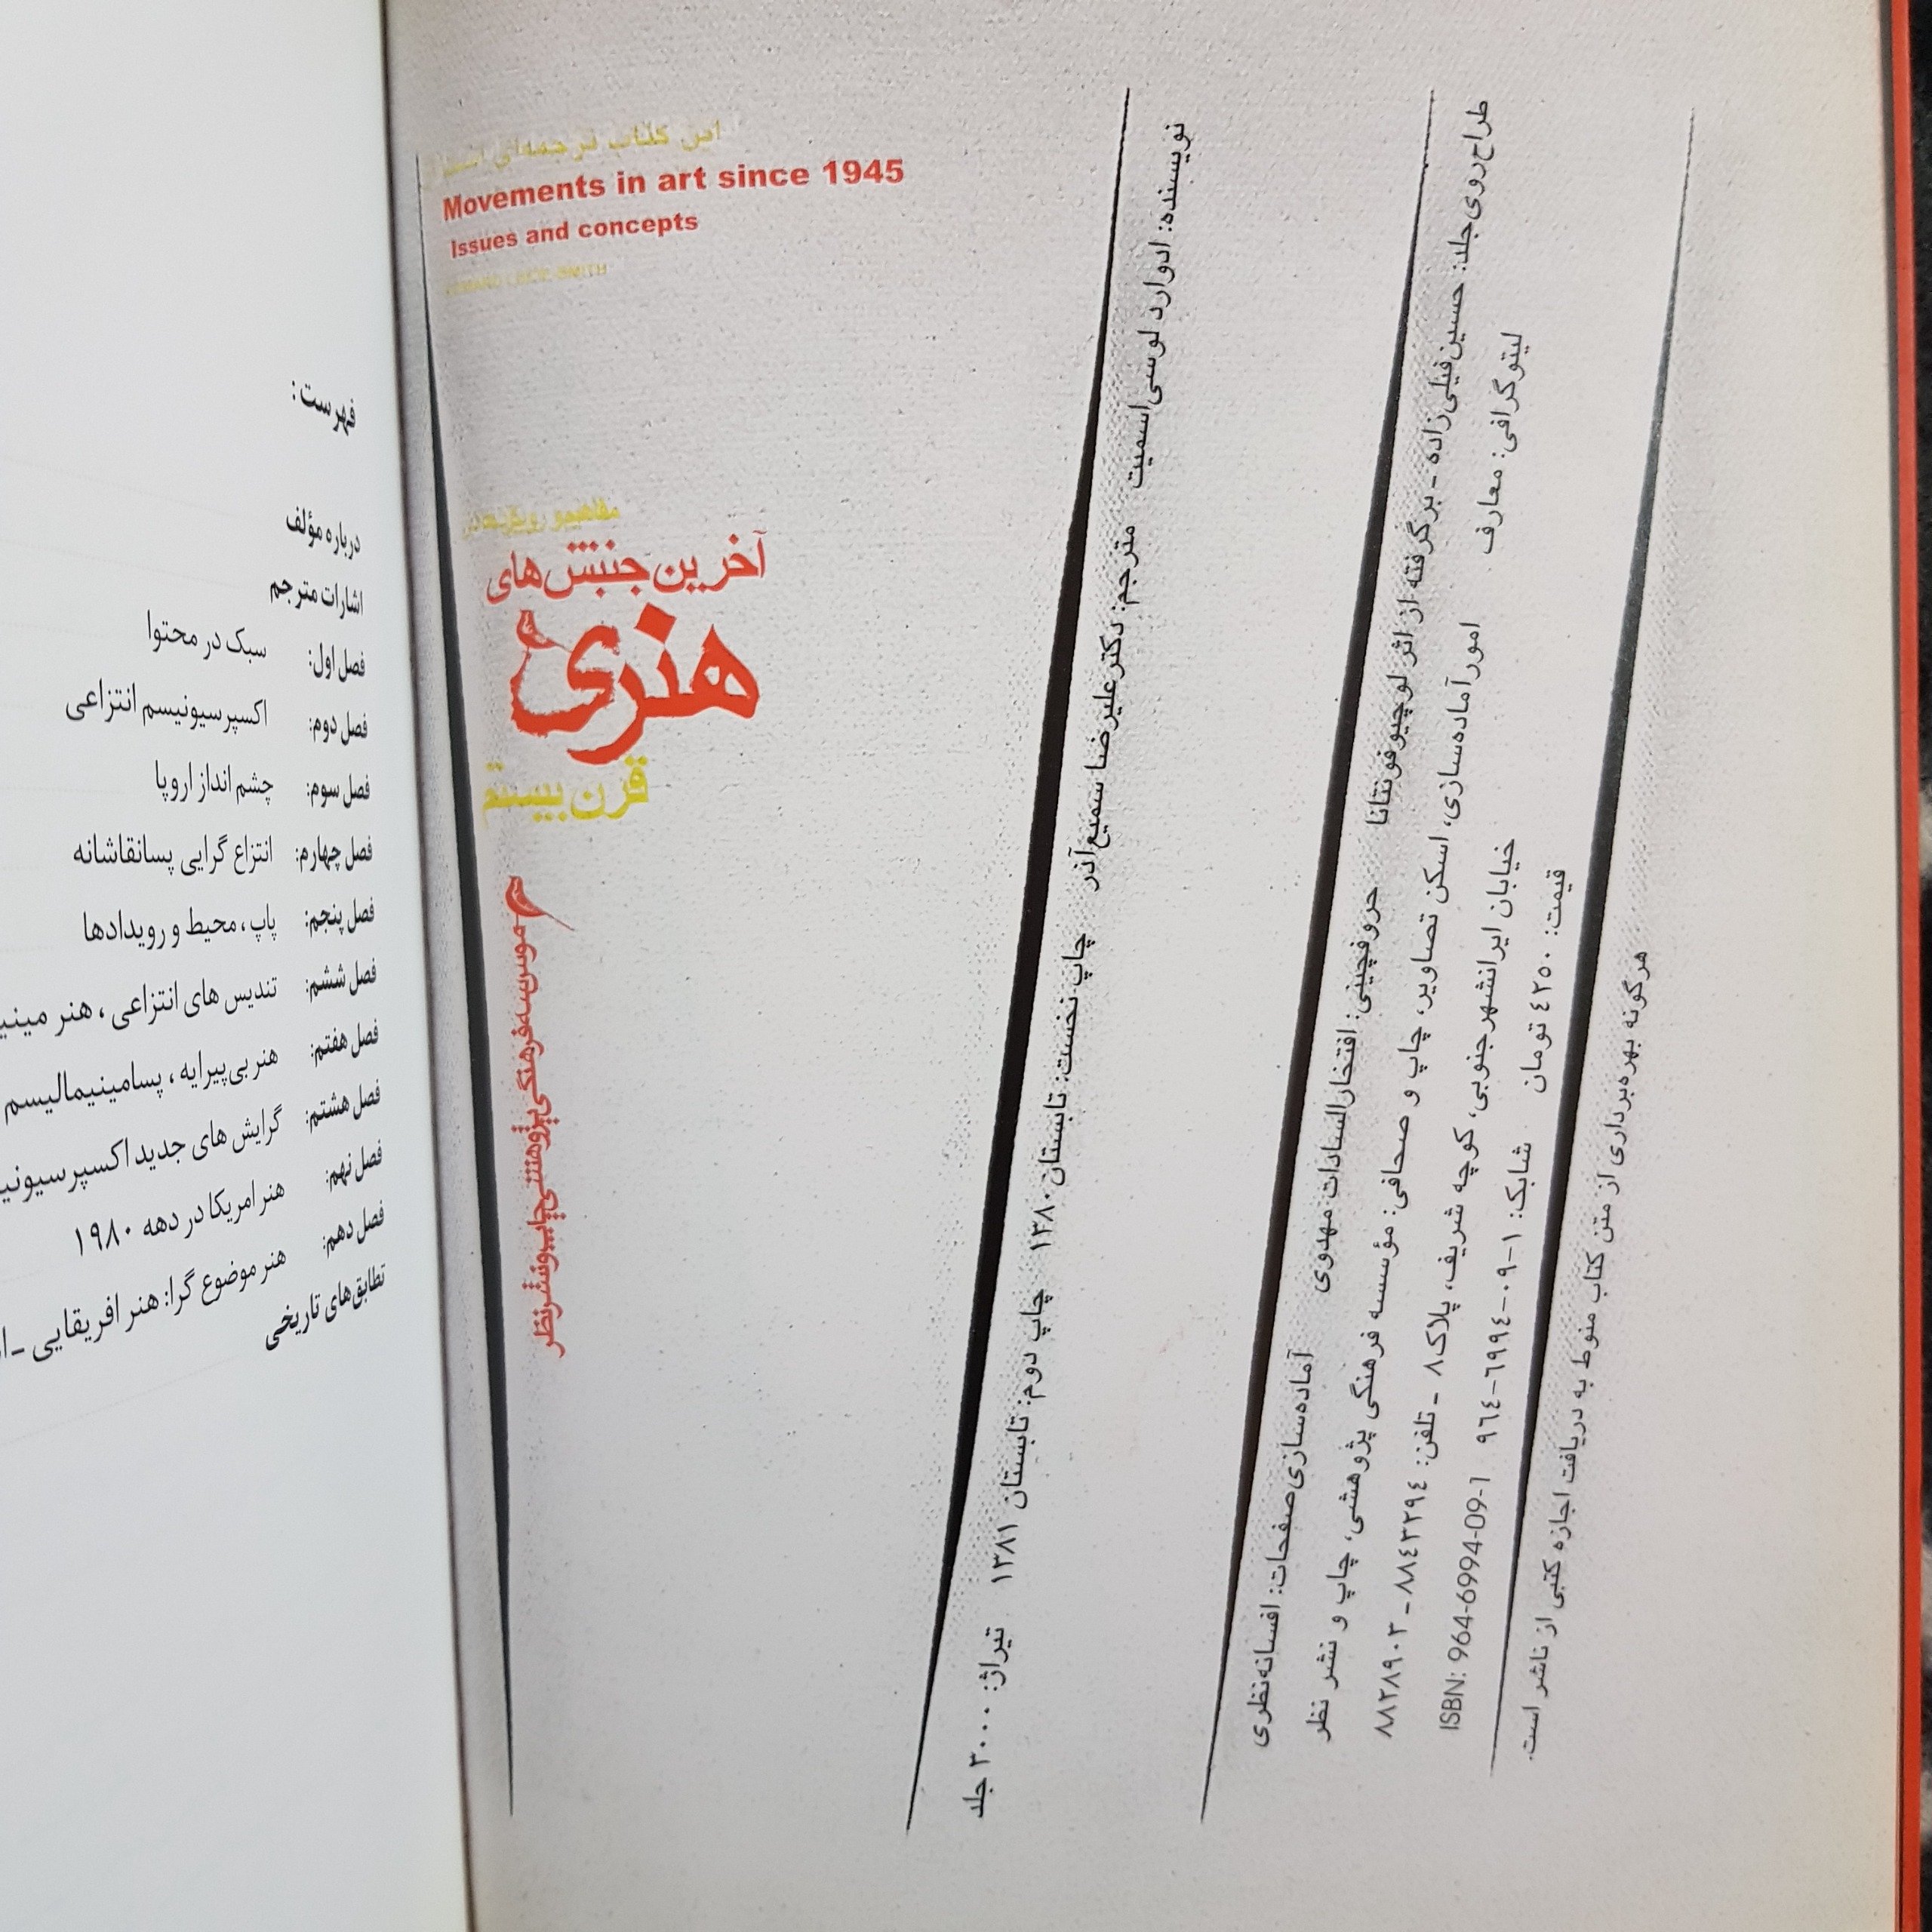 این کتاب ترجمه‌ای است از
Movements in art since 1945
Issues and concepts
EDWARD LUCIE-SMITH
مفاهیم و رویکردها در
آخرین جنبش‌های
هنری
قرن بیستم
موسسه فرهنگی پژوهشی چاپ و نشر نظر
نویسنده: ادوارد لوسی‌اسمیت مترجم: دکتر علیرضا سمیع‌آذر چاپ نخست: تابستان ۱۳۸۰ چاپ دوم: تابستان ۱۳۸۱ تیراژ: ۳۰۰۰ جلد
طراح روی جلد: حسین فیلی‌زاده - برگرفته از اثر لوچیو فونتانا حروفچینی: افتخارالسادات مهدوی آماده‌سازی صفحات: افسانه نظری
لیتوگرافی: معارف امور آماده‌سازی، اسکن تصاویر، چاپ و صحافی: مؤسسه فرهنگی پژوهشی، چاپ و نشر نظر
خیابان ایرانشهر جنوبی، کوچه شریف، پلاک ۸ - تلفن: ۸۸٤۳۲۹٤ - ۸۸۲۸۹۰۲
قیمت: ٤۲۵۰ تومان شابک: ۱-۰۹-٦۹۹٤-۹٦٤ ISBN: 964-6994-09-1
هرگونه بهره‌برداری از متن کتاب منوط به دریافت اجازه کتبی از ناشر است.
فهرست:
درباره مؤلف
اشارات مترجم
فصل اول: سبک در محتوا
فصل دوم: اکسپرسیونیسم انتزاعی
فصل سوم: چشم انداز اروپا
فصل چهارم: انتزاع گرایی پسانقاشانه
فصل پنجم: پاپ، محیط و رویدادها
فصل ششم: تندیس های انتزاعی، هنر
فصل هفتم: هنر بی‌پیرایه، پسامینیمالیسم
فصل هشتم: گرایش های جدید
فصل نهم: هنر امریکا در دهه ۱۹۸۰
فصل دهم: هنر موضوع گرا: هنر افریقایی -
تطابق‌های تاریخی